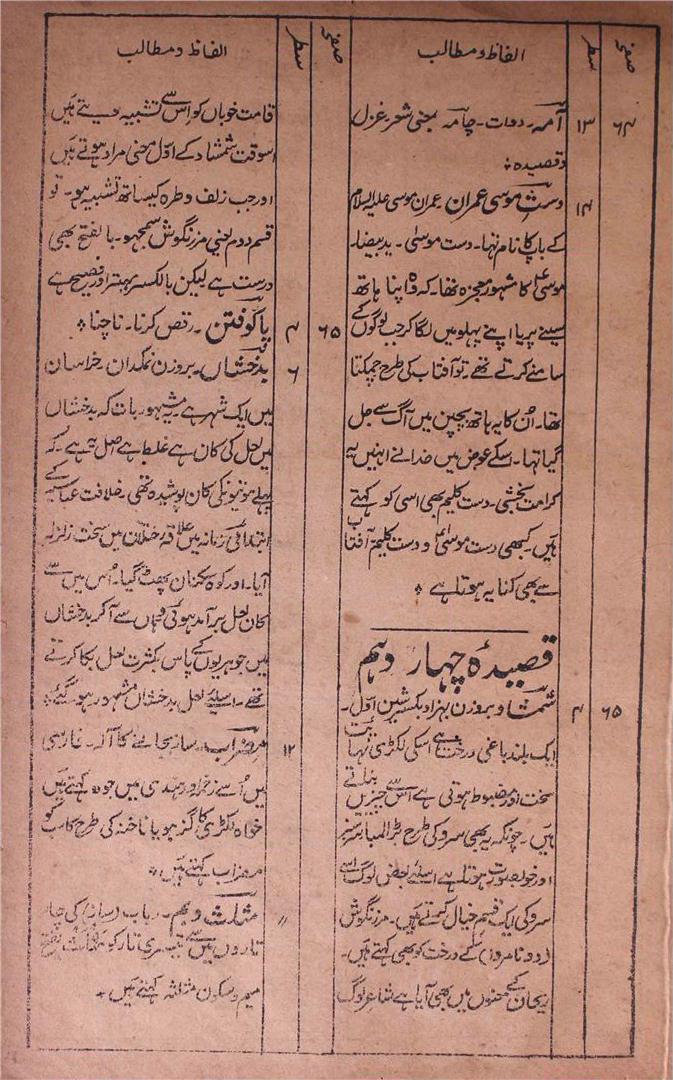 صفحہ سطر الفاظ و مطالب
۶۴ ۱۳ آمہ۔ دوات۔ چامہ بمعنی شعر۔ غزل
و قصیدہ ؞
۱۴ دستِ موسیٰ عمران۔ عمران موسیٰ علیہ السلام
کے باپ کا نام تہا۔ دست موسیٰ۔ ید بیضا۔
موسیٰؑ کا مشہور معجزہ تھا۔ کہ وہ اپنا ہاتھ
سینے پر یا اپنے پہلو میں لگا کر جب لوگوں کے
سامنے کرتے تھے۔ تو آفتاب کی طرح چمکتا
تھا۔ اُن کا یہ ہاتھ بچپن میں آگ سے جل
گیا تہا۔ اسکے عوض میں خدا نے انہیں یہ
کرامت بخشی۔ دست کلیم بھی اسی کو کہتے
ہیں۔ کبھی دست موسیٰؑ و دست کلیمؑ آفتاب
سے بھی کنایہ ہوتا ہے ؞
قصیدہ چہار دہم
۶۵ ۴ شمشاد بروزن بہزاد بکسر شین اوّل۔
ایک بلند باغی درخت ہے اسکی لکڑی نہایت
سخت اور مضبوط ہوتی ہے اُس سے چیزیں بناتے
ہیں۔ چونکہ یہ بھی سرو کی طرح بڑا لمبا سرسبز
اور خوبصورت ہوتا ہے اسلئے بعض لوگ اسے
سرو کی ایک قسم خیال کرتے ہیں۔ مرزنگوش
(دونا مروا) کے درخت کو بھی کہتے ہیں۔
ریحان کے معنوں میں بھی آیا ہے شاعر لوگ
صفحہ سطر الفاظ و مطالب
قامت خوباں کو اس سے تشبیہ دیتے ہیں
اسوقت شمشاد کے اوّل معنی مراد ہوتے ہیں
اور جب زلف و طرہ کیساتھ تشبیہ ہو۔ تو
قسم دوم یعنی مرزنگوش سمجہو۔ بالفتح بھی
درست ہے لیکن بالکسر بہتر اور فصیح ہے
۶۵ ۴ پا کوفتن۔ رقص کرنا۔ ناچنا ؞
۶ بدخشاں۔ بروزن نمکدان۔ خراسان
میں ایک شہر ہے۔ یہ مشہور بات کہ بدخشاں
میں لعل کی کان ہے غلط ہے اصل یہ ہے۔ کہ
پہلے موتیونکی کان پوشیدہ تھی۔ خلافت عباسیہ کے
ابتدائی زمانہ میں علاقہ ختلان میں سخت زلزلہ
آیا۔ اور کوہ سکنان پھٹ گیا۔ اُس میں سے
کان لعل برآمد ہوئی وہاں سے آ کر بدخشاں
میں جوہریوں کے پاس بکثرت لعل بکا کرتے
تھے۔ اسلئے لعل بدخشاں مشہور ہو گئے ؞
۱۲ مضراب۔ ساز بجانے کا آلہ۔ فارسی
میں اُسے زخمہ اور ہندی میں جوہ کہتے ہیں
خواہ لکڑی کا گز ہو یا ناخنہ کی طرح کا سب کو
مضراب کہتے ہیں ؞
〃 مثلث و بم۔ رباب (ساز) کی چار
تاروں میں سے تیسری تار کو بفتح
میم و سکون مثلثہ کہتے ہیں ؞